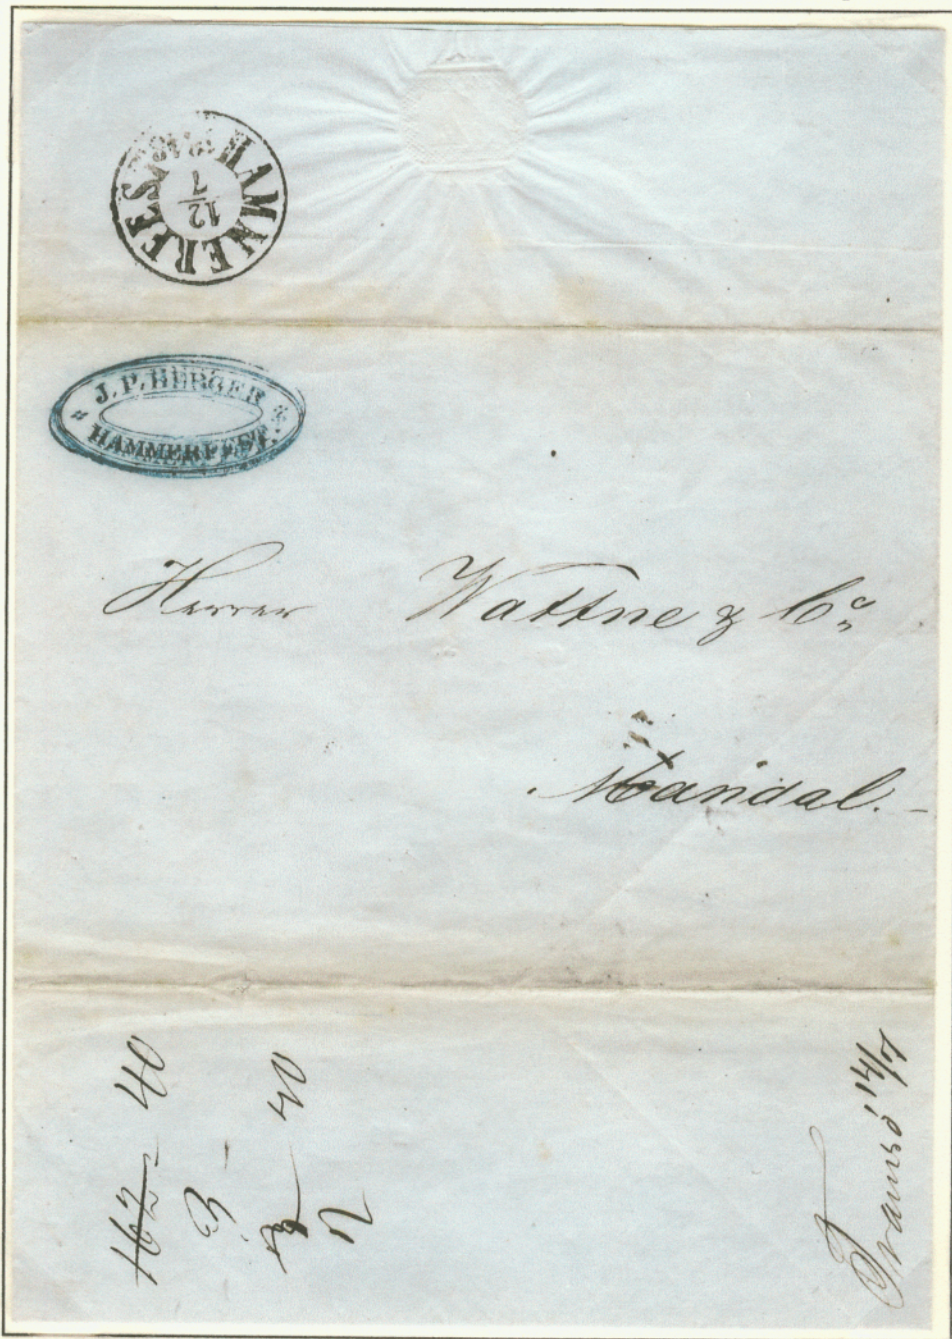 HAMMERFEST
12
7
J. P. BERGER
HAMMERFEST.
Herrer Wattne & Co
Mandal.
162 - 40
3 -
40
Tromsö 14/7